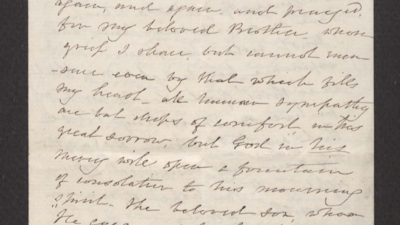 again, and again, and prayed,
for my beloved Brother, whose
grief I share but cannot mea
-sure even by that which fills
my heart - all human sympathy
are but drops of comfort in this
great sorrow but God in his
mercy will open a fountain
of consolation to his mourning
spirit. The beloved son, whom
He